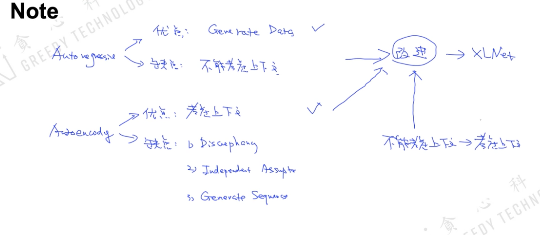 Note
优点: Generate Data ✓
Autoregressive
缺点: 不能考虑上下文
改进 → XLNet
优点: 考虑上下文 ✓
Autoencoding
缺点: 1) Discrepancy
2) Independent Assumption
3) Generate Sequence
不能考虑上下文 → 考虑上下文
贪心科
GREEDY TECHNOLOGY
贪心科
GREEDY TECHN